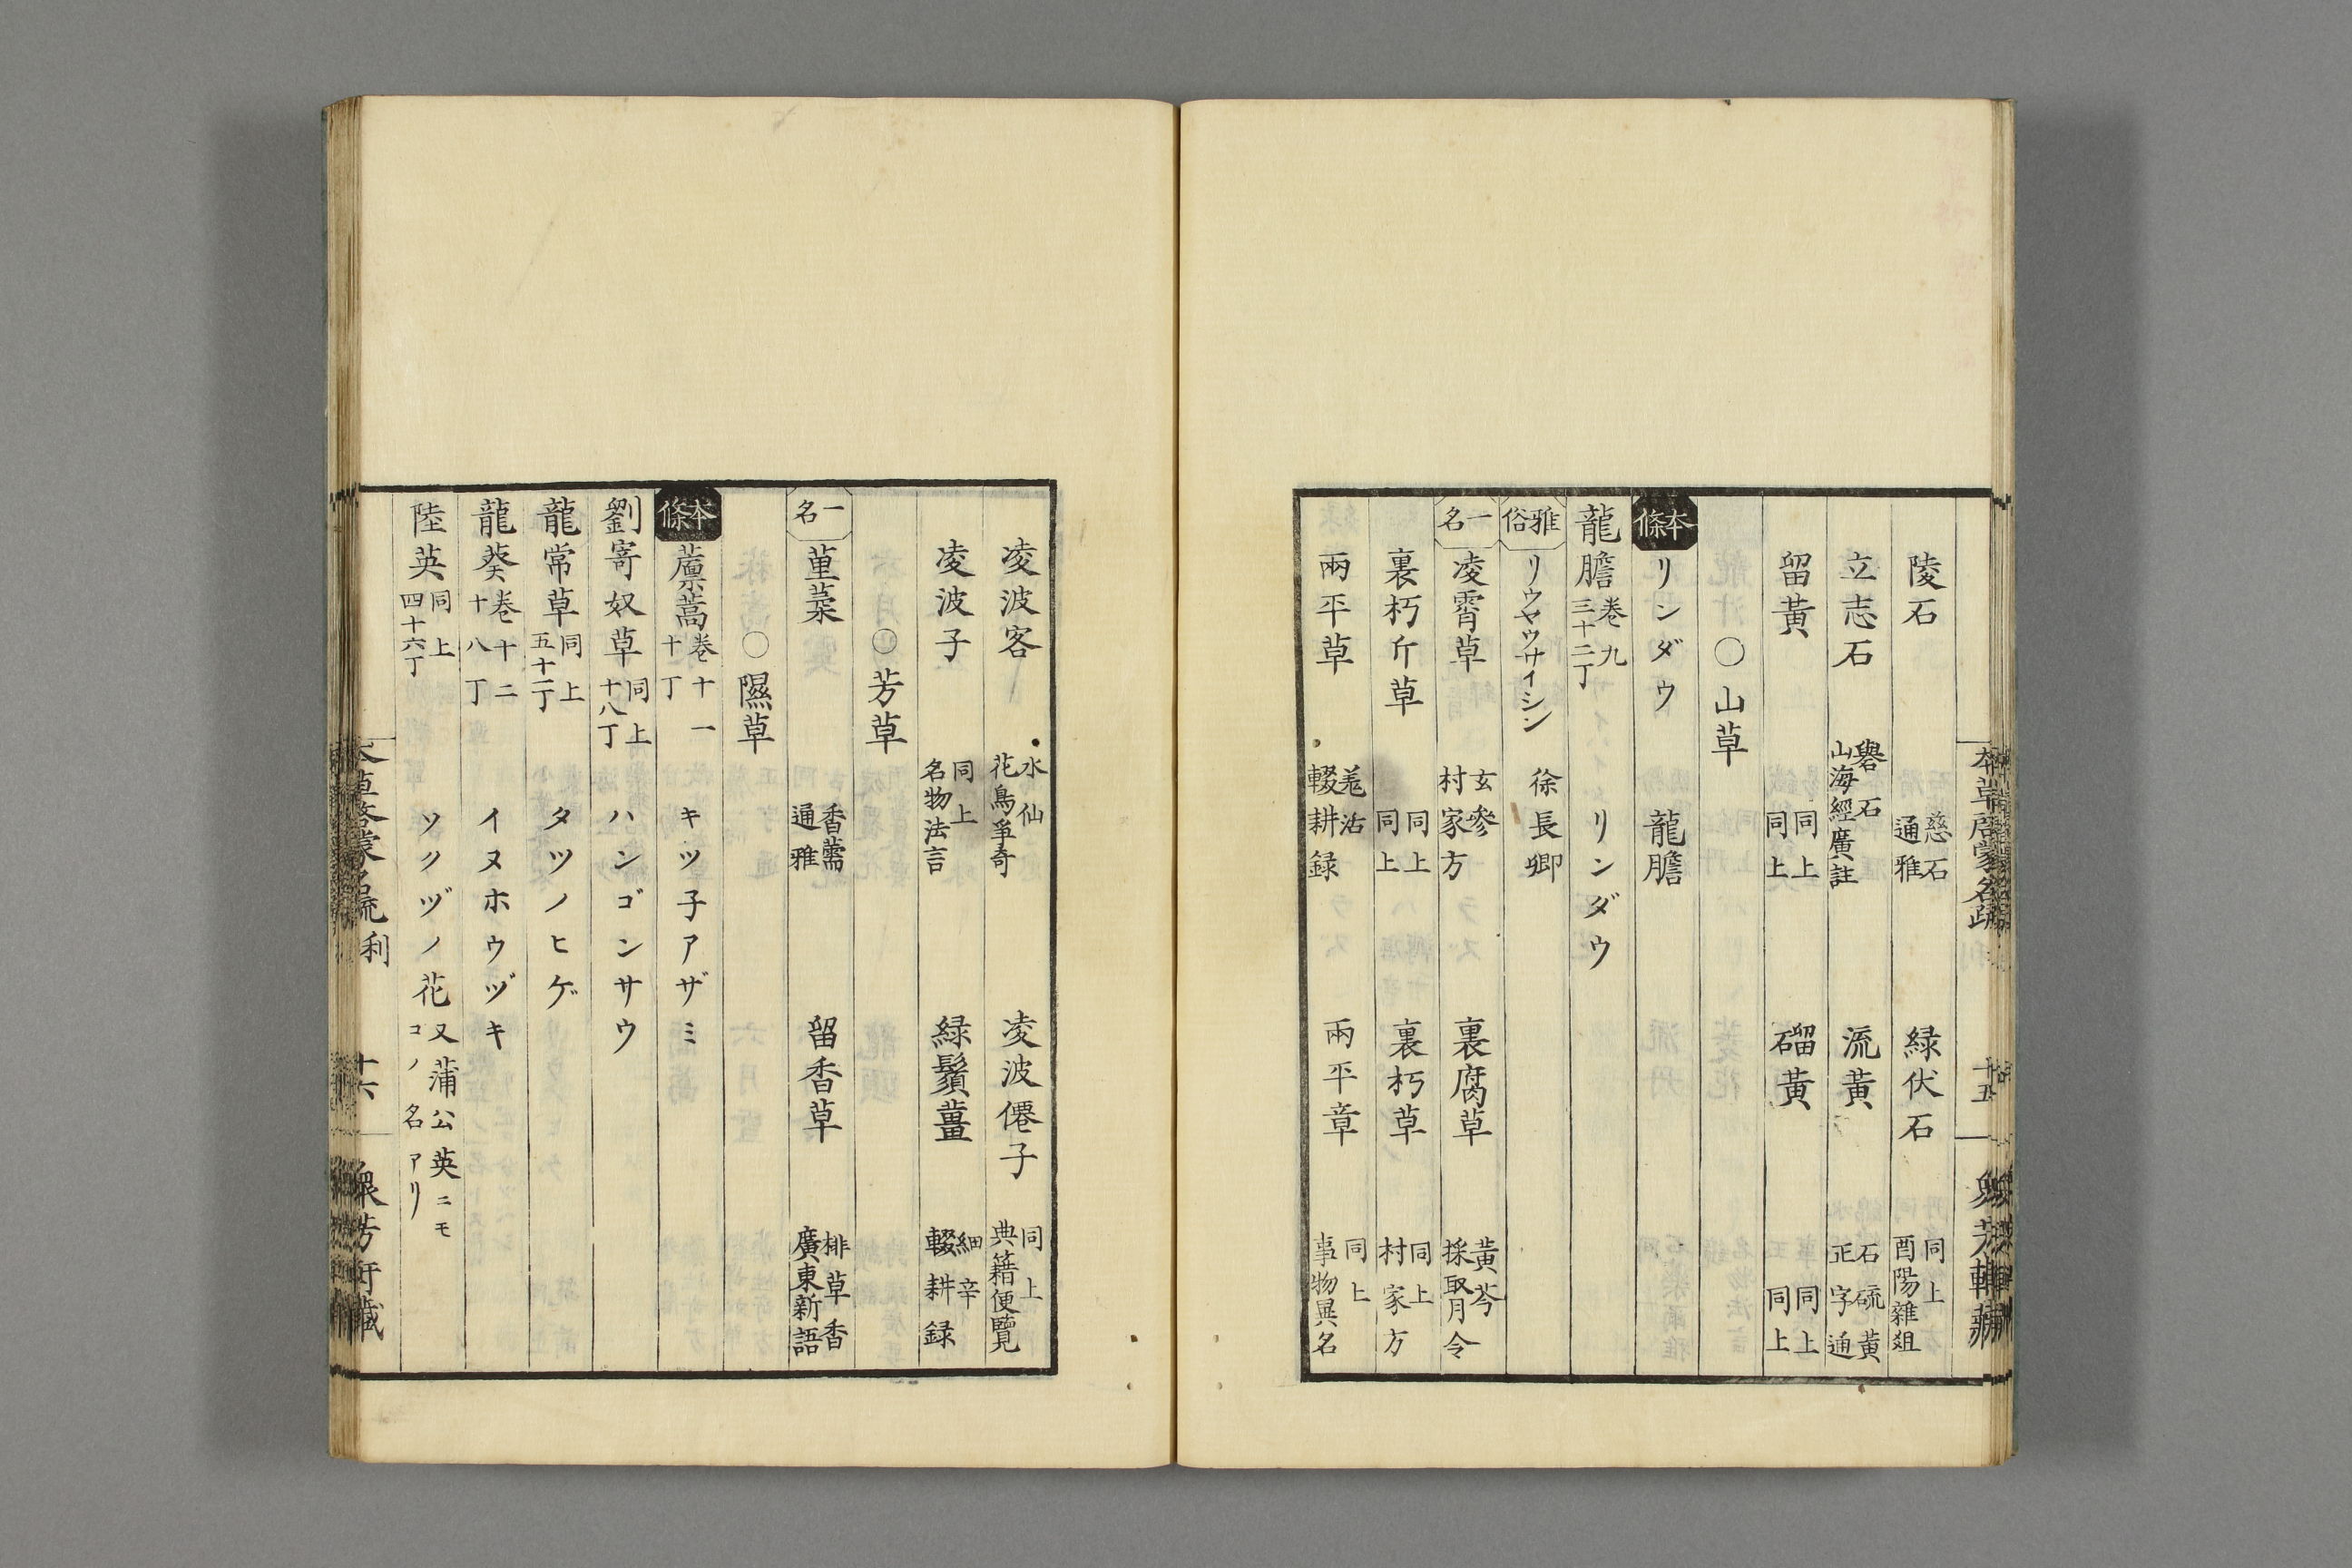 本草啓蒙名疏 十五 衆芳軒藏
陵石 慈石 通雅 緑伏石 同上 酉陽雜俎
立志石 礜石 山海經廣註 流黃 石硫黃 正字通
留黃 同上 同上 磂黃 同上 同上
○山草
本條 リンダウ 龍膽
龍膽 卷九 三十二丁 リンダウ
雅俗 リウヤウサイシン 徐長卿
一名 凌霄草 玄參 村家方 裏腐草 黃芩 採取月令
裏朽斤草 同上 同上 裏朽草 同上 村家方
兩平草 羗活 輟耕録 兩平章 同上 事物異名
凌波客 水仙 花鳥爭奇 凌波僊子 同上 典籍便覽
凌波子 同上 名物法言 緑鬚薑 細辛 輟耕録
○芳草
一名 菫菜 香薷 通雅 留香草 排草香 廣東新語
○隰草
本條 藨蒿 卷十一 十丁 キツ子アザミ
劉寄奴草 同上 十八丁 ハンゴンサウ
龍常草 同上 五十一丁 タツノヒゲ
龍葵 卷十二 十八丁 イヌホウヅキ
陸英 同上 四十六丁 ソクヅノ花 又蒲公英ニモ コノ名アリ
本草啓蒙名疏 利 十六 衆芳軒藏